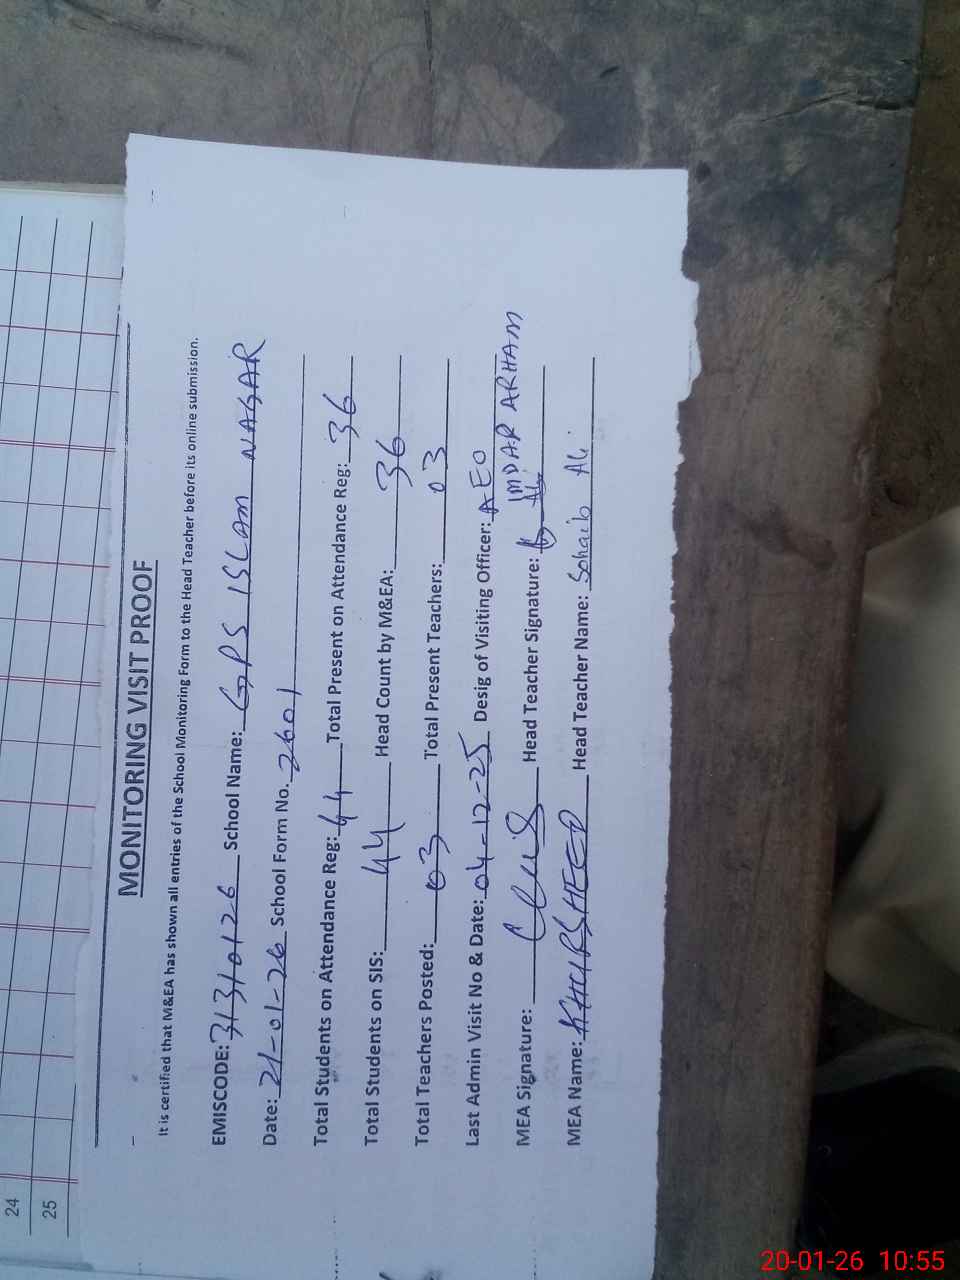 24
25
MONITORING VISIT PROOF
It is certified that M&EA has shown all entries of the School Monitoring Form to the Head Teacher before its online submission.
EMISCODE: 31310126 School Name: GPS ISLAM NAGAR
Date: 21-01-26 School Form No. 2601
Total Students on Attendance Reg: 44 Total Present on Attendance Reg: 36
Total Students on SIS: 44 Head Count by M&EA: 36
Total Teachers Posted: 03 Total Present Teachers: 03
Last Admin Visit No & Date: 04-12-25 Desig of Visiting Officer: AEO
IMDAR ARHAM
MEA Signature: Head Teacher Signature:
MEA Name: KHURSHEED Head Teacher Name: Sohaib Ali
20-01-26 10:55